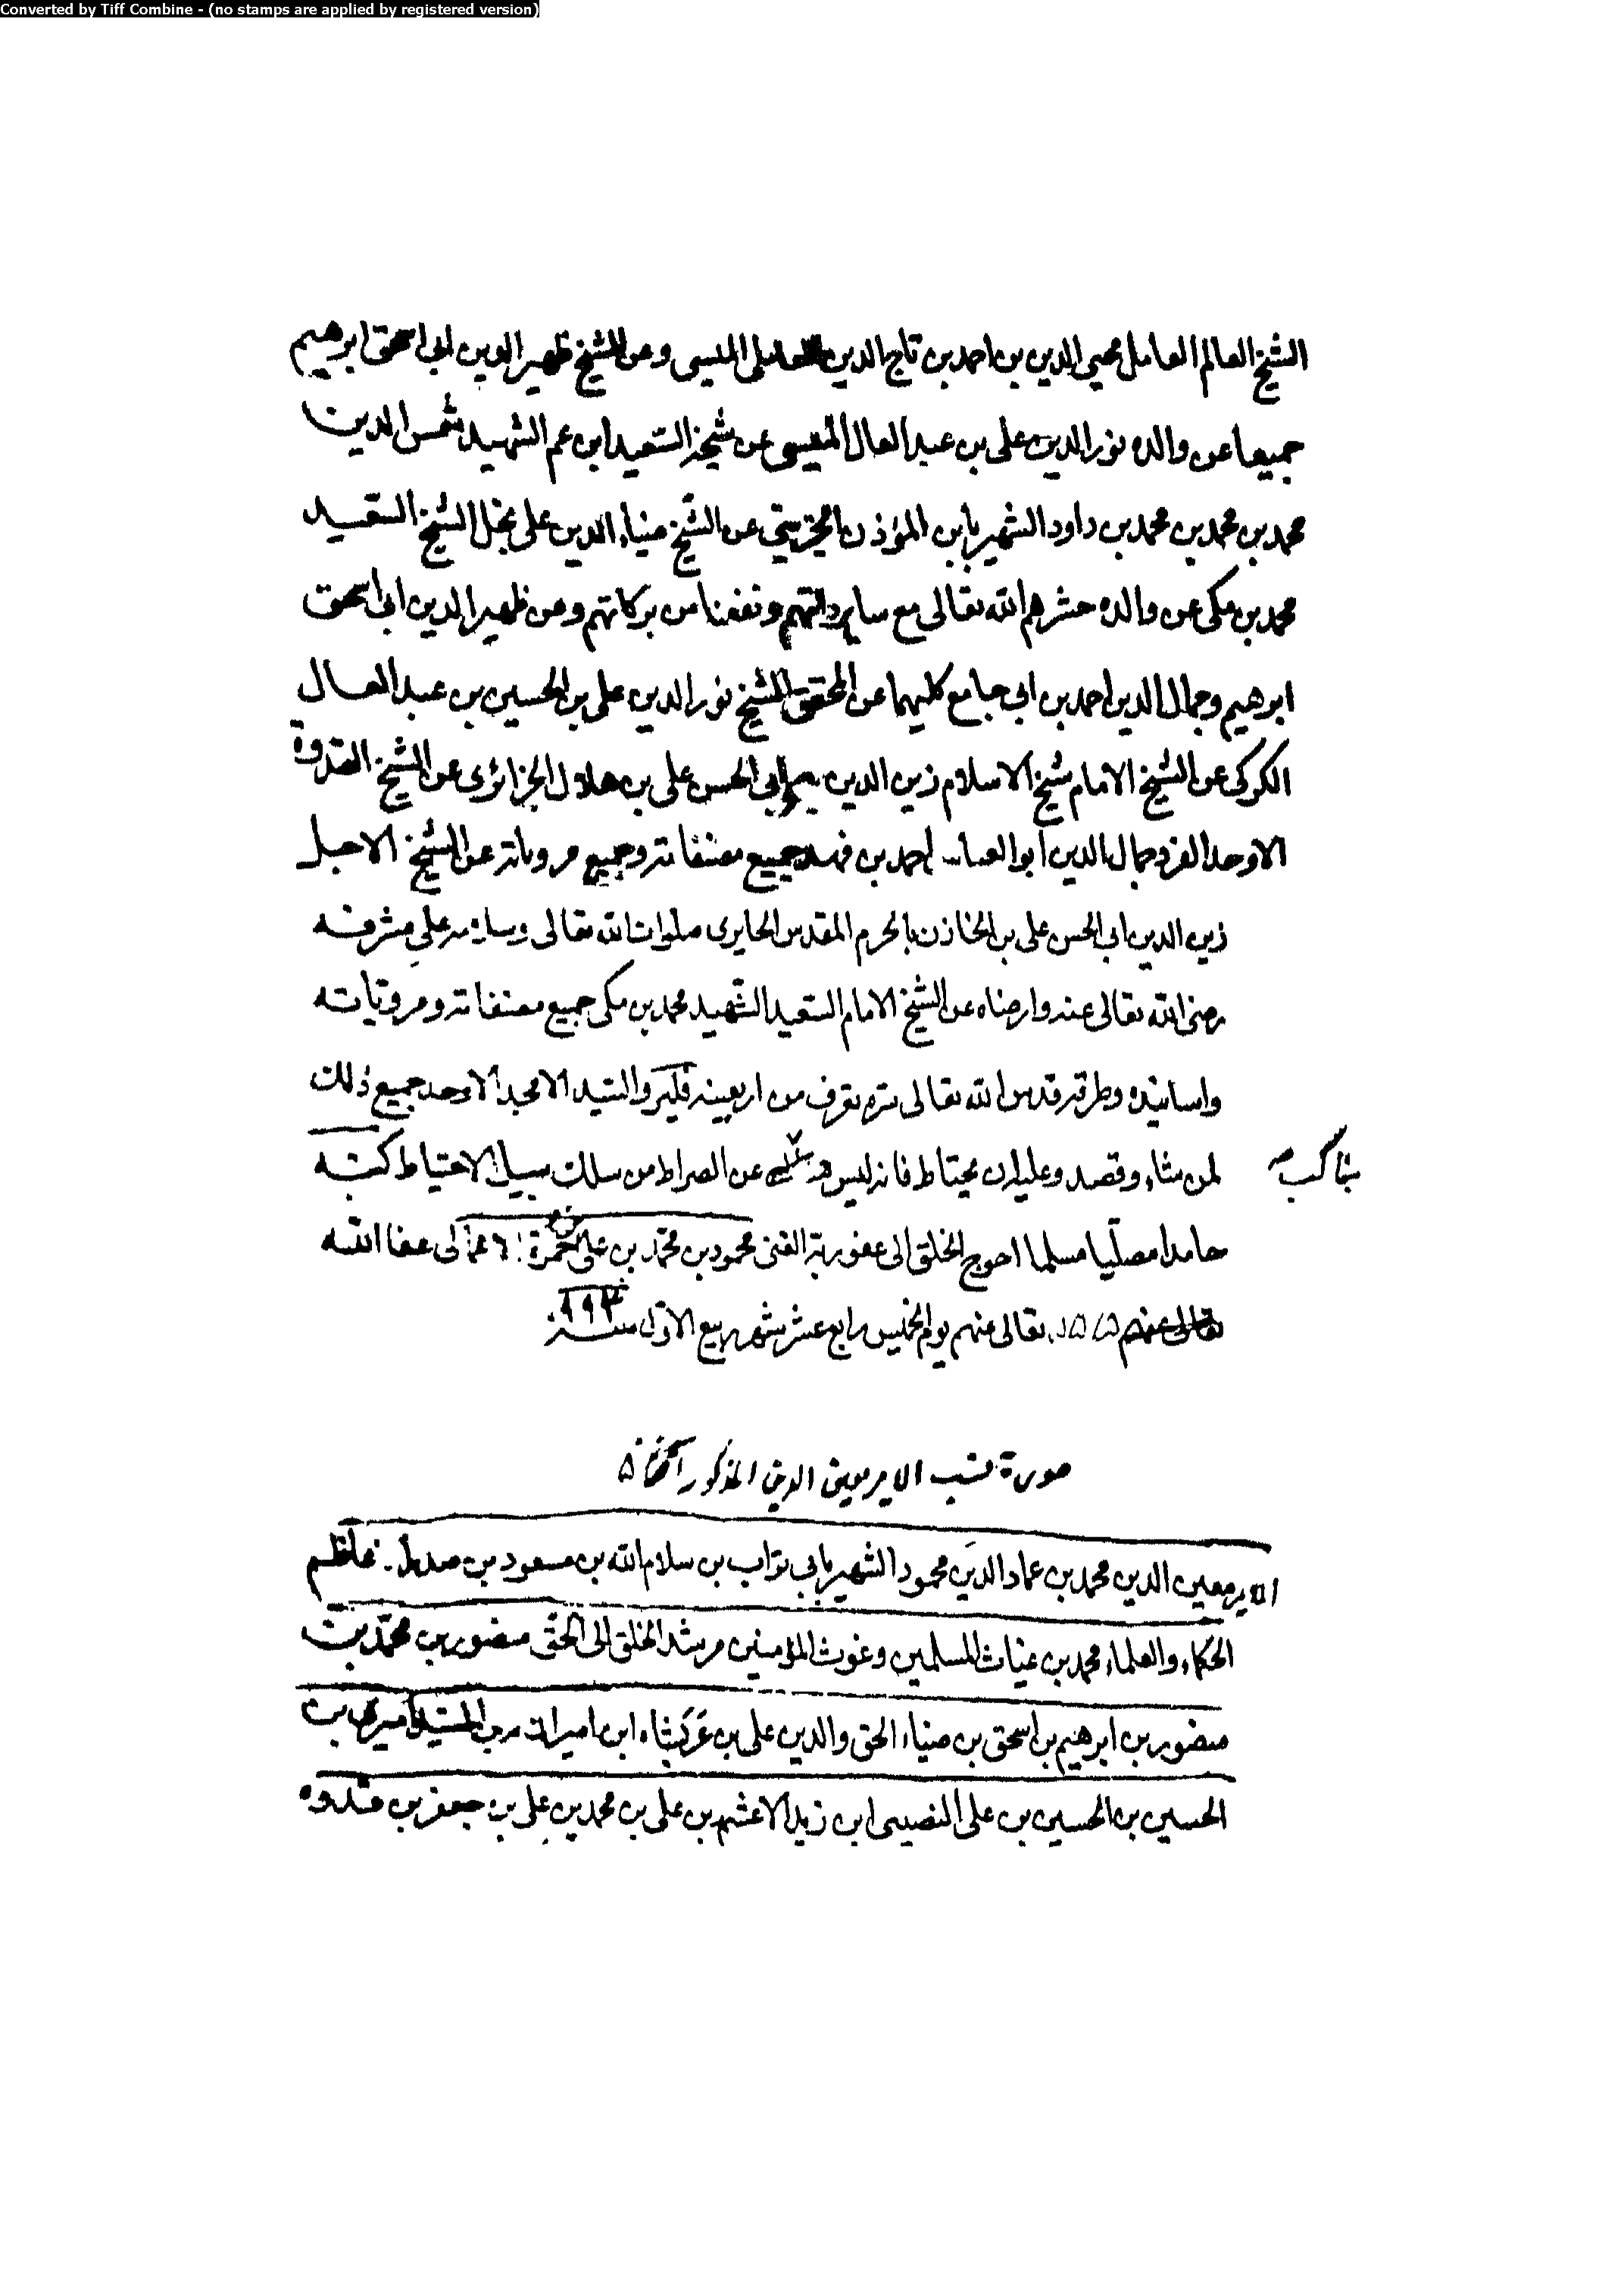 Converted by Tiff Combine - (no stamps are applied by registered version)
الشيخ العالم العامل محيى الدين بن احمد بن تاج الدين العاملى الميسى وعن الشيخ ظهير الدين ابى اسحق ابرهيم
جميعا عن والده نور الدين على بن عبد العال الميسى عن شيخه السعيد ابن عم الشهيد شمس الدين
محمد بن محمد بن محمد بن داود الشهير بابن المؤذن الجزينى عن الشيخ ضياء الدين على نجل الشيخ السعيد
محمد بن مكى عن والده حشرهم الله تعالى مع ساداتهم ونفعنا من بركاتهم وعن ظهير الدين ابى اسحق
ابرهيم وجمال الدين احمد بن ابى جامع كليهما عن المحقق الشيخ نور الدين على بن الحسين بن عبد العال
الكركى عن الشيخ الامام شيخ الاسلام زين الدين ابى الحسن على بن هلال الجزائرى عن الشيخ القدوة
الاوحد الفرد جمال الدين ابو العباس احمد بن فهد جميع مصنفاته وجميع مروياته عن الشيخ الاجل
زين الدين ابى الحسن على بن الخازن بالحرم المقدس الحايرى صلوات الله تعالى وسلامه على مشرفه
رضى الله تعالى عنه وارضاه عن الشيخ الامام السعيد الشهيد محمد بن مكى جميع مصنفاته ومروياته
واسانيده وطرقه قدس الله تعالى سره تعرف من اربعينه فليرو السيد الامجد الاوحد جميع ذلك
لمن شاء وقصد وعليه ان يحتاط فانه ليس عن الصراط من سلك سبيل الاحتياط كتبه
بناكب
حامدا مصليا مسلما احوج الخلق الى عفو ربه الغنى محمود بن محمد بن على حمزة لا عفا الله
تعالى عنهم تعالى عنهم يوم الخميس رابع عشر شهر ربيع الاول سنة ٩٩٣
صورة نسب الامير معين الدين المذكور آنفا
الامير معين الدين محمد بن عماد الدين محمود الشهير بابى تراب بن سلام الله بن مسعود بن صدر
الحكماء والعلماء محمد بن غياث المسلمين وغوث المؤمنين مرشد الخلق الى الحق منصور بن محمد بن
منصور بن ابرهيم بن اسحق بن ضياء الحق والدين على بن عربشاه ابن اميران بن اميرى بن
الحسين بن الحسين بن على النصيبى ابن زيد الاعشم بن على بن محمد بن على بن جعفر بن